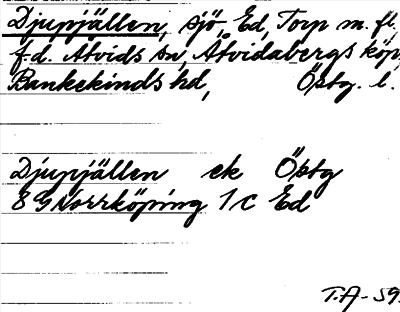 Djupjällen, sjö, Ed, Torp m. fl,
f.d. Åtvids sn, Åtvidabergs köp,
Bankekinds hd, Östg. l.
Djupjällen ek Östg
8 G Norrköping 1 c Ed
T.A-59